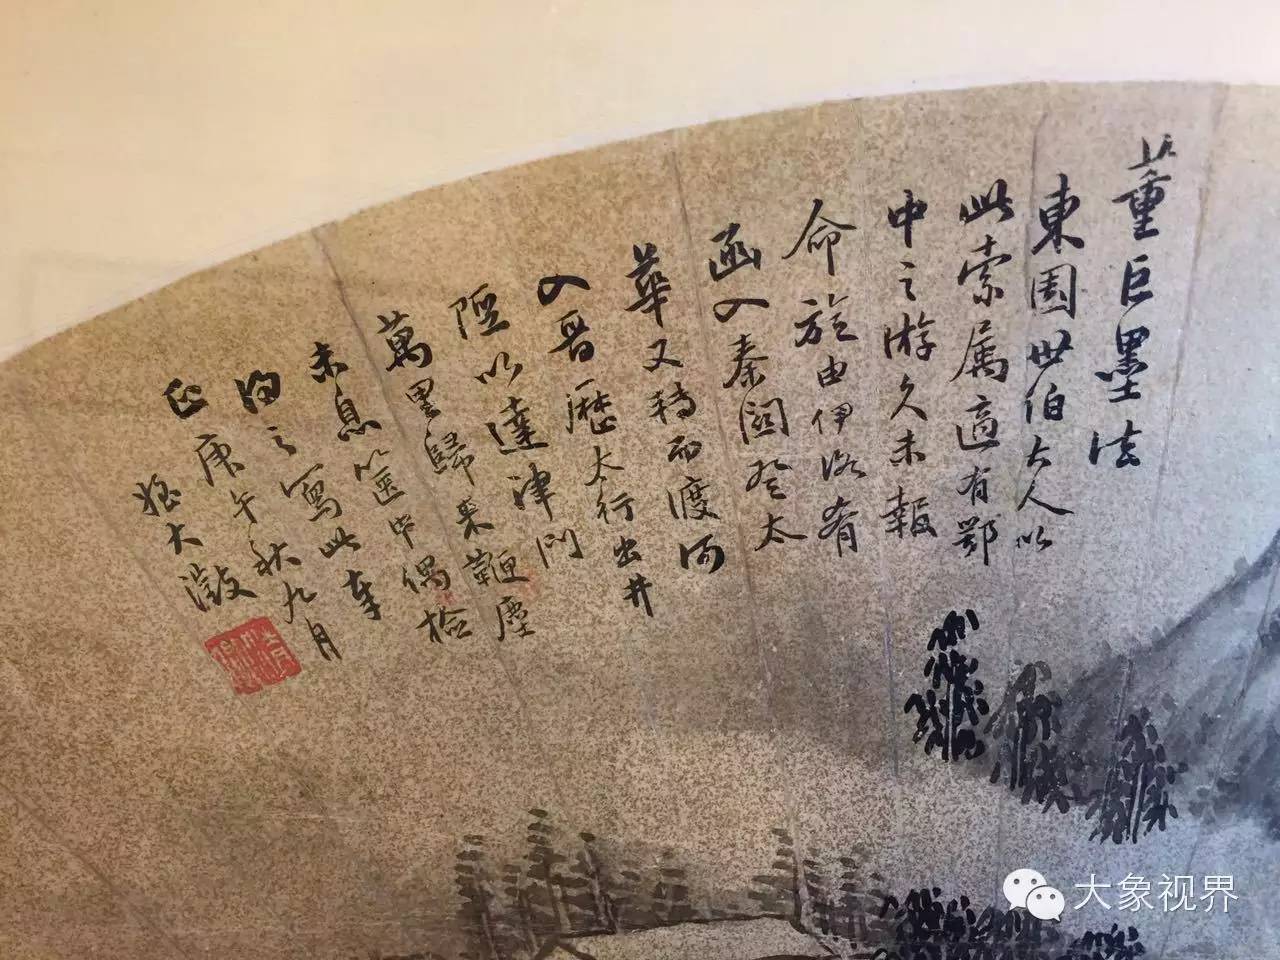 董巨墨法
東園世伯大人以
此索属適有鄂
中之游久未報
命旋由伊洛肴
函入秦關登太
華又轉而渡河
入晉歷太行出井
陘以達津門
萬里歸来鞭塵
未息篋中偶檢
得之寫此奉
正庚午秋九月
姪大澂
大象视界